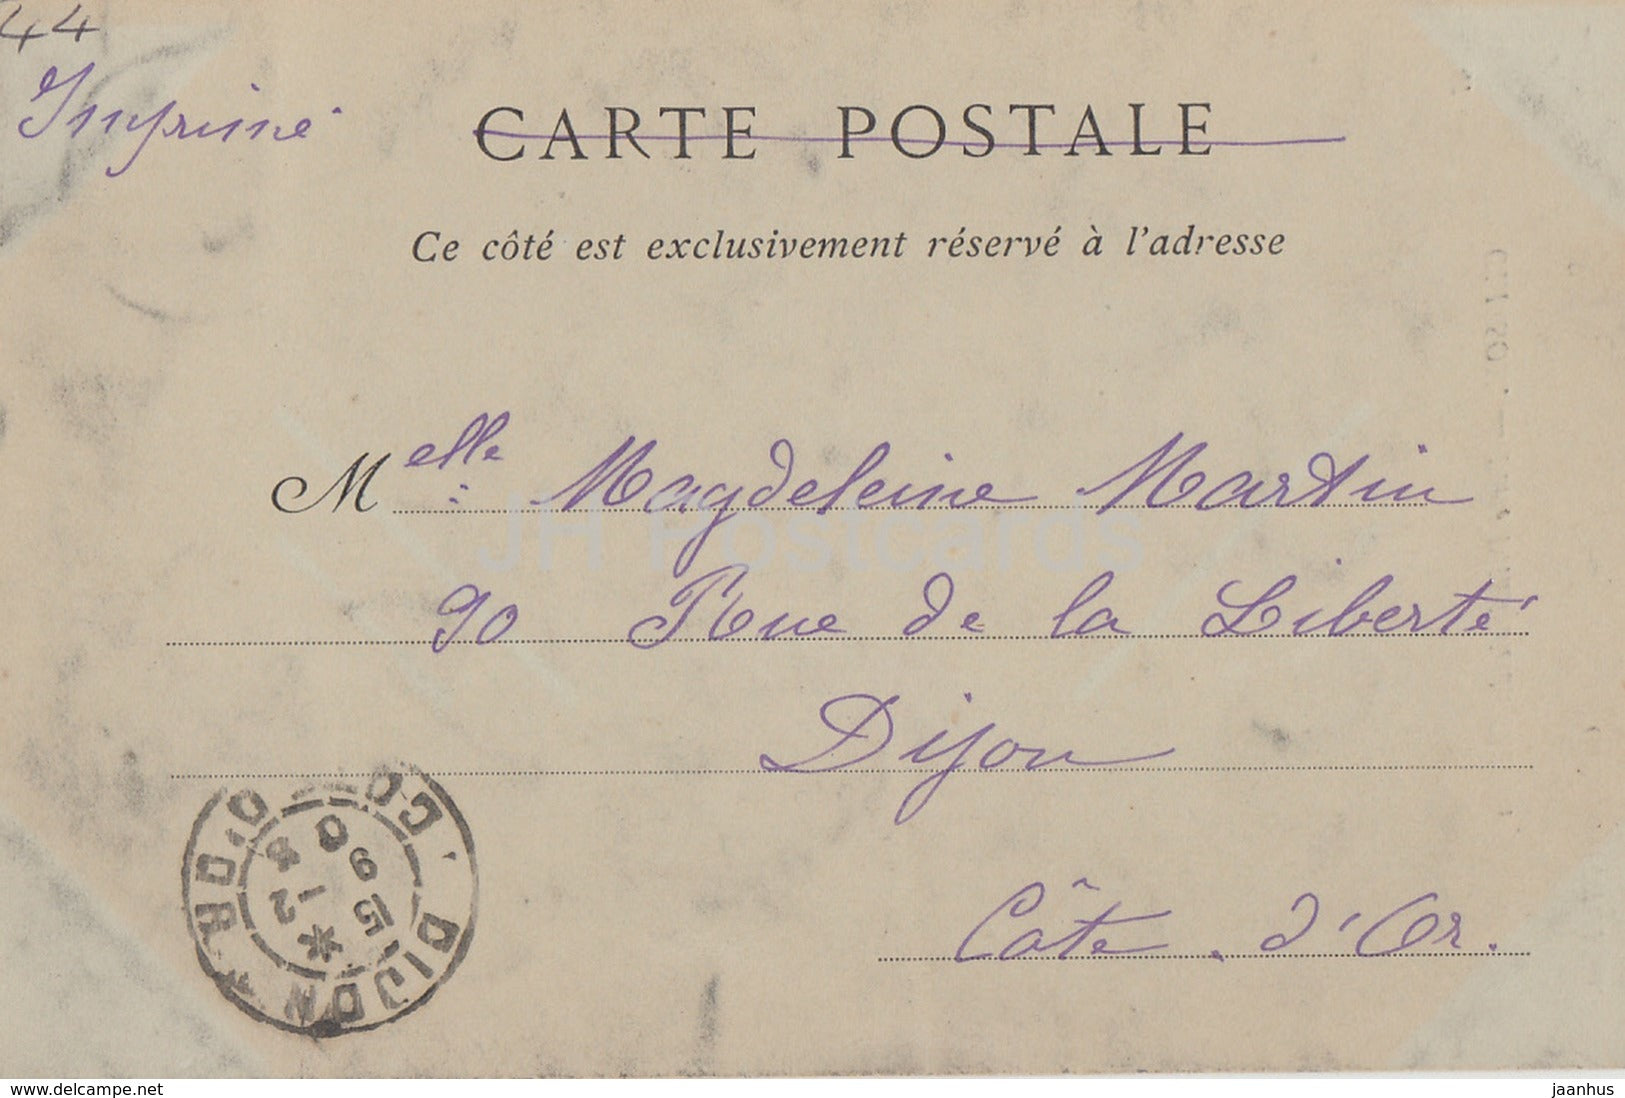 44
Imprimé
CARTE POSTALE
Ce côté est exclusivement réservé à l'adresse
Melle : Magdeleine Martin
JH Postcards
90 Rue de la Liberté
Dijon
Côte . d'Or.
DIJON
www.delcampe.net
jaanhus